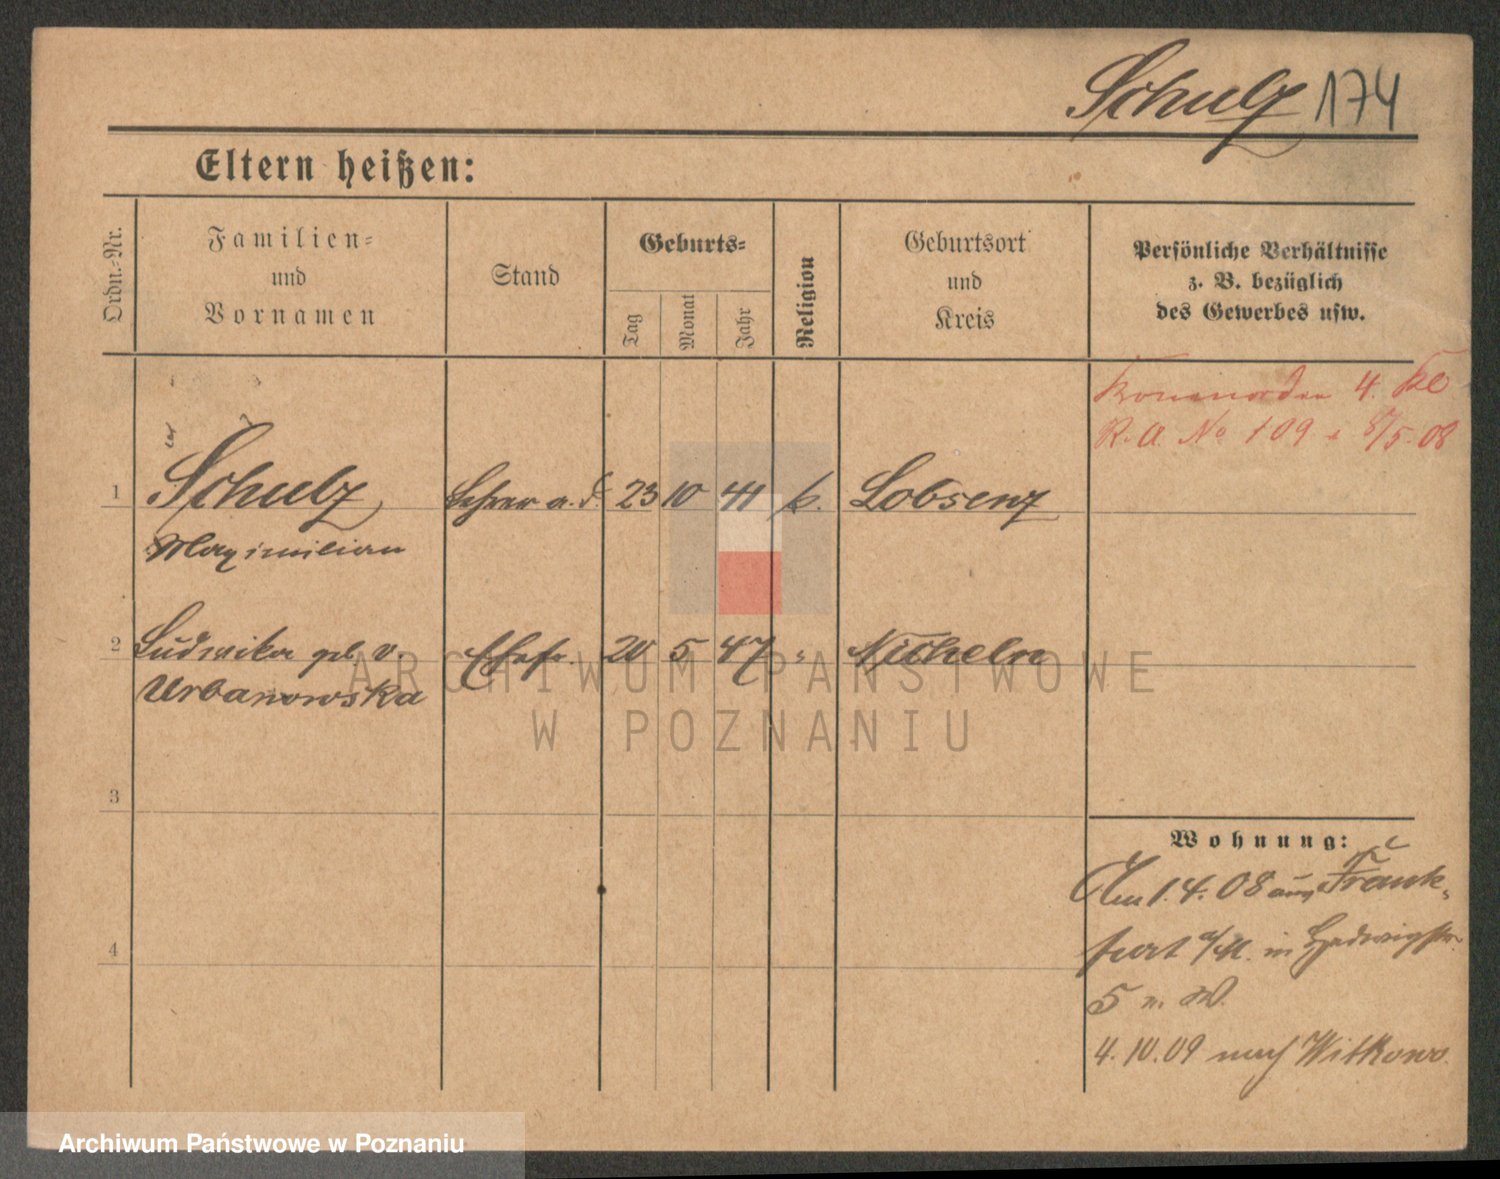 Schulz 174
Eltern heißen:
Ordn.-Nr.
Familien-
und
Vornamen
Stand
Geburts-
Tag
Monat
Jahr
Religion
Geburtsort
und
Kreis
Persönliche Verhältnisse
z. B. bezüglich
des Gewerbes usw.
Kronenorden 4. Kl
R. A. No 109 8/5. 08
1 Schulz Lehrer a. d. 23 10 41 k. Lobsenz
Maximilian
2 Ludwika geb. v. Ehefr. 20 5 47 "
Urbanowska
3
Wohnung:
Am 1. 4. 08 aus Frank-
furt a/M. in Hedwigstr.
4
5 n. W.
4. 10. 09 nach Witkowo.
ARCHIWUM PAŃSTWOWE
W POZNANIU
Archiwum Państwowe w Poznaniu